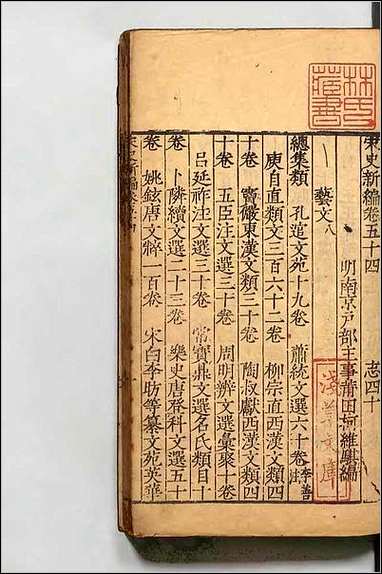 宋史新編卷五十四 志四十
明南京戶部主事莆田柯維騏編
藝文八
總集類 孔逭文苑十九卷 蕭統文選六十卷李善注
庾自直類文三百六十二卷 柳宗直西漢文類四
十卷 竇儼東漢文類三十卷 陶叔獻西漢文類四
十卷 五臣注文選三十卷 周明辨文選彙聚十卷
呂延祚注文選三十卷 常寶鼎文選名氏類目十
卷 卜隣續文選二十三卷 樂史唐登科文選五十
卷 姚鉉唐文粹一百卷 宋白李昉等纂文苑英華
林氏藏書
淺草文庫